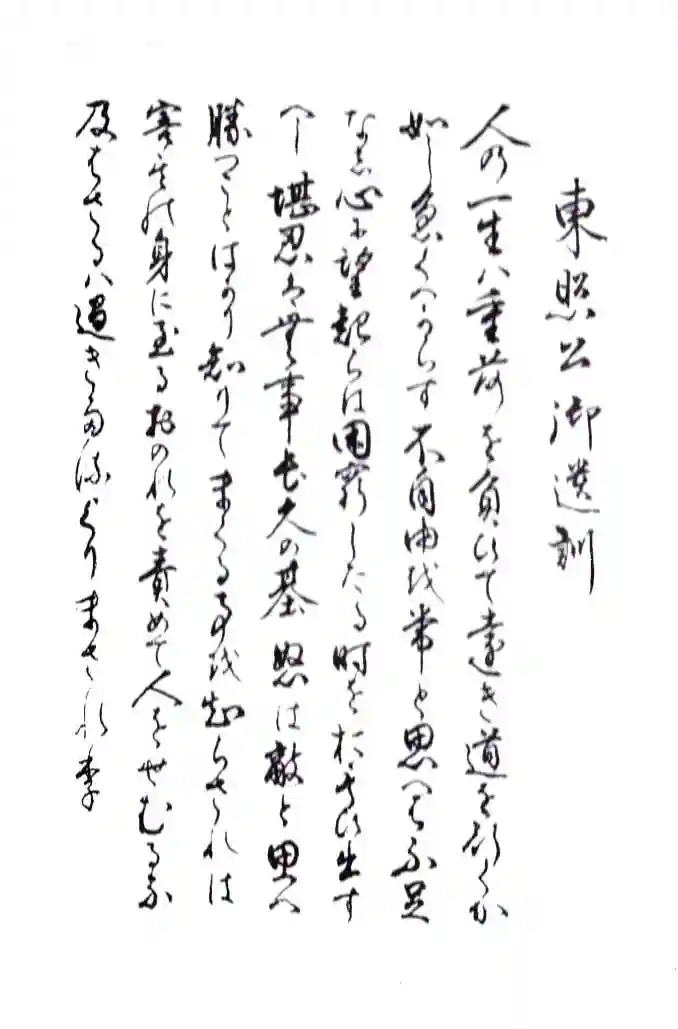 東照公御遺訓
人の一生ハ重荷を負ひて遠き道を行くか
如し急くへからす不自由を常と思へは不足
なし心に望起らは困窮したる時を於もひ出す
へし堪忍は無事長久の基怒は敵と思へ
勝つことはかり知りてまくる事を知らされは
害其の身に至るおのれを責めて人をせむるな
及はさるハ過きたるよりまされり